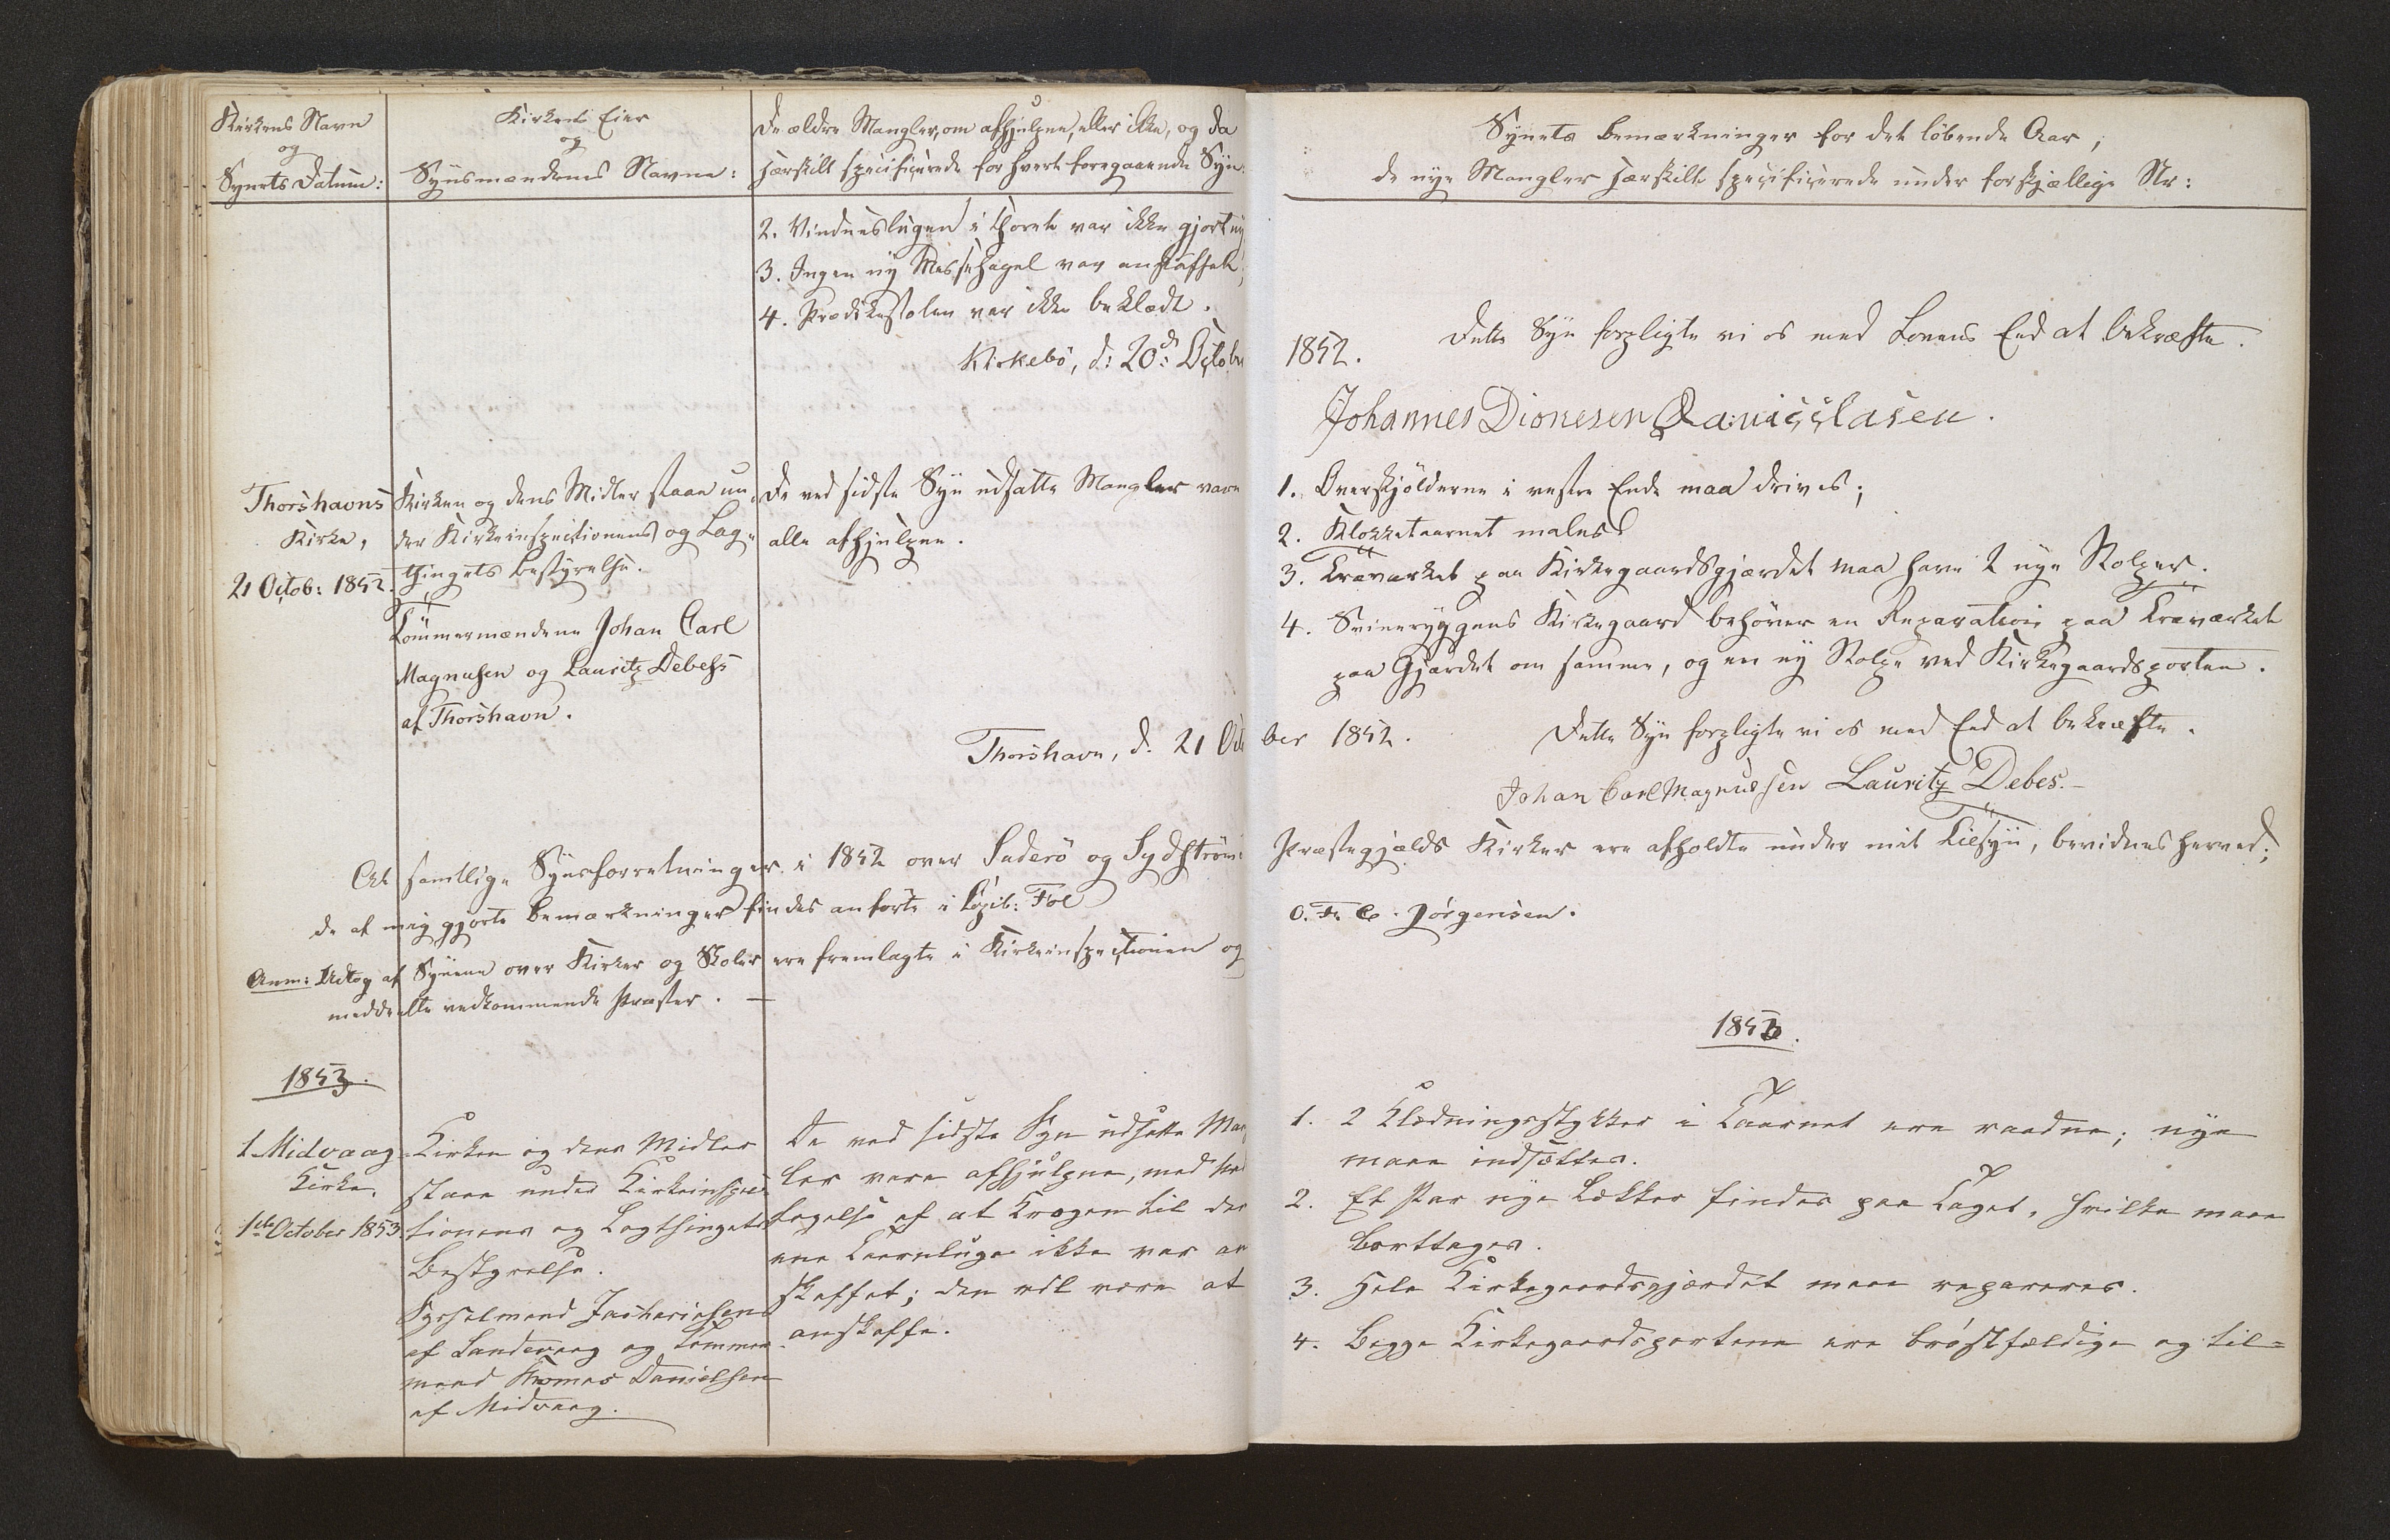 Kirkens Navn
og
Synets Datum:
Kirkens Eier
og
Synsmændenes Navne:
De ældre Mangler, om afhjulpne, eller ikke, og da
særskilt specificerede for hvert foregaaende Syn.
2. Vinduesslugen i Choret var ikke gjort ny
3. Ingen ny Messehagel var anskaffet;
4. Prædikestolen var ikke beklædt.
Kirkebö, d: 20d: Octobr
Thorshavns
Kirke,
21 Octob: 1852.
Kirken og dens Midler staae un-
der Kirkeinspectionens og Lag-
thingets Bestyrelse.
Tömmermændene Johan Carl
Magnusen og Lauritz Debess
af Thorshavn.
De ved sidste Syn udsatte Mangler vare
alle afhjulpne.
Thorshavn, d. 21 Octo
At samtlige Synsforretninger i 1852 over Suderö og Sydströmö
de af mig gjorte Bemærkninger findes anförte i Copib: Fol
Anm: Udtog af Synene over Kirker og Skoler ere fremlagte i Kirkeinspectionen og
meddeelte vedkommende Præster. —
1853.
1. Midvaag
Kirke.
1ste October 1853
Kirken og dens Midler
staae under Kirkeinspec-
tionens og Lagthingets
Bestyrelse.
Sysselmand Zachariasen
af Sandevaag og Tömmer-
mand Thomas Danielsen
af Midvaag.
De ved sidste Syn udsatte Mang
ler vare afhjulpne, med Und
tagelse af at Krogen til den
ene Taarnluge ikke var an
skaffet; den vil være at
anskaffe.
Synets Bemærkninger for det löbende Aar,
de nye Mangler særskilt specificerede under forskjællige Nr:
1852.
Dette Syn forpligte vi os med Lovens Eed at bekræfte.
Johannes Dionesen
1. Overskjölderne i vestre Ende maa drives;
2. Klokketaarnet males
3. Træværket paa Kirkegaardsgjærdet maa have 2 nye Stolper.
4. Svineryggens Kirkegaard behöver en Reparation paa Træværket
paa Gjærdet om samme, og en ny Stolpe ved Kirkegaardsporten.
ber 1852.
Dette Syn forpligte vi os med Eed at bekræfte.
Johan Carl Magnussen Lauritz Debes.-
Præstegjælds Kirker ere afholdte under mit Tilsyn, bevidnes herved;
O. F. C. Jörgensen.
1853.
1. 2 Klædningsstykker i Taarnet ere raadne; nye
maae indsættes.
2. Et Par nye Lækker findes paa Taget, hvilke maae
borttages.
3. Hele Kirkegaardsgjærdet maae repareres.
4. Begge Kirkegaardsportene ere bröstfældige og til=